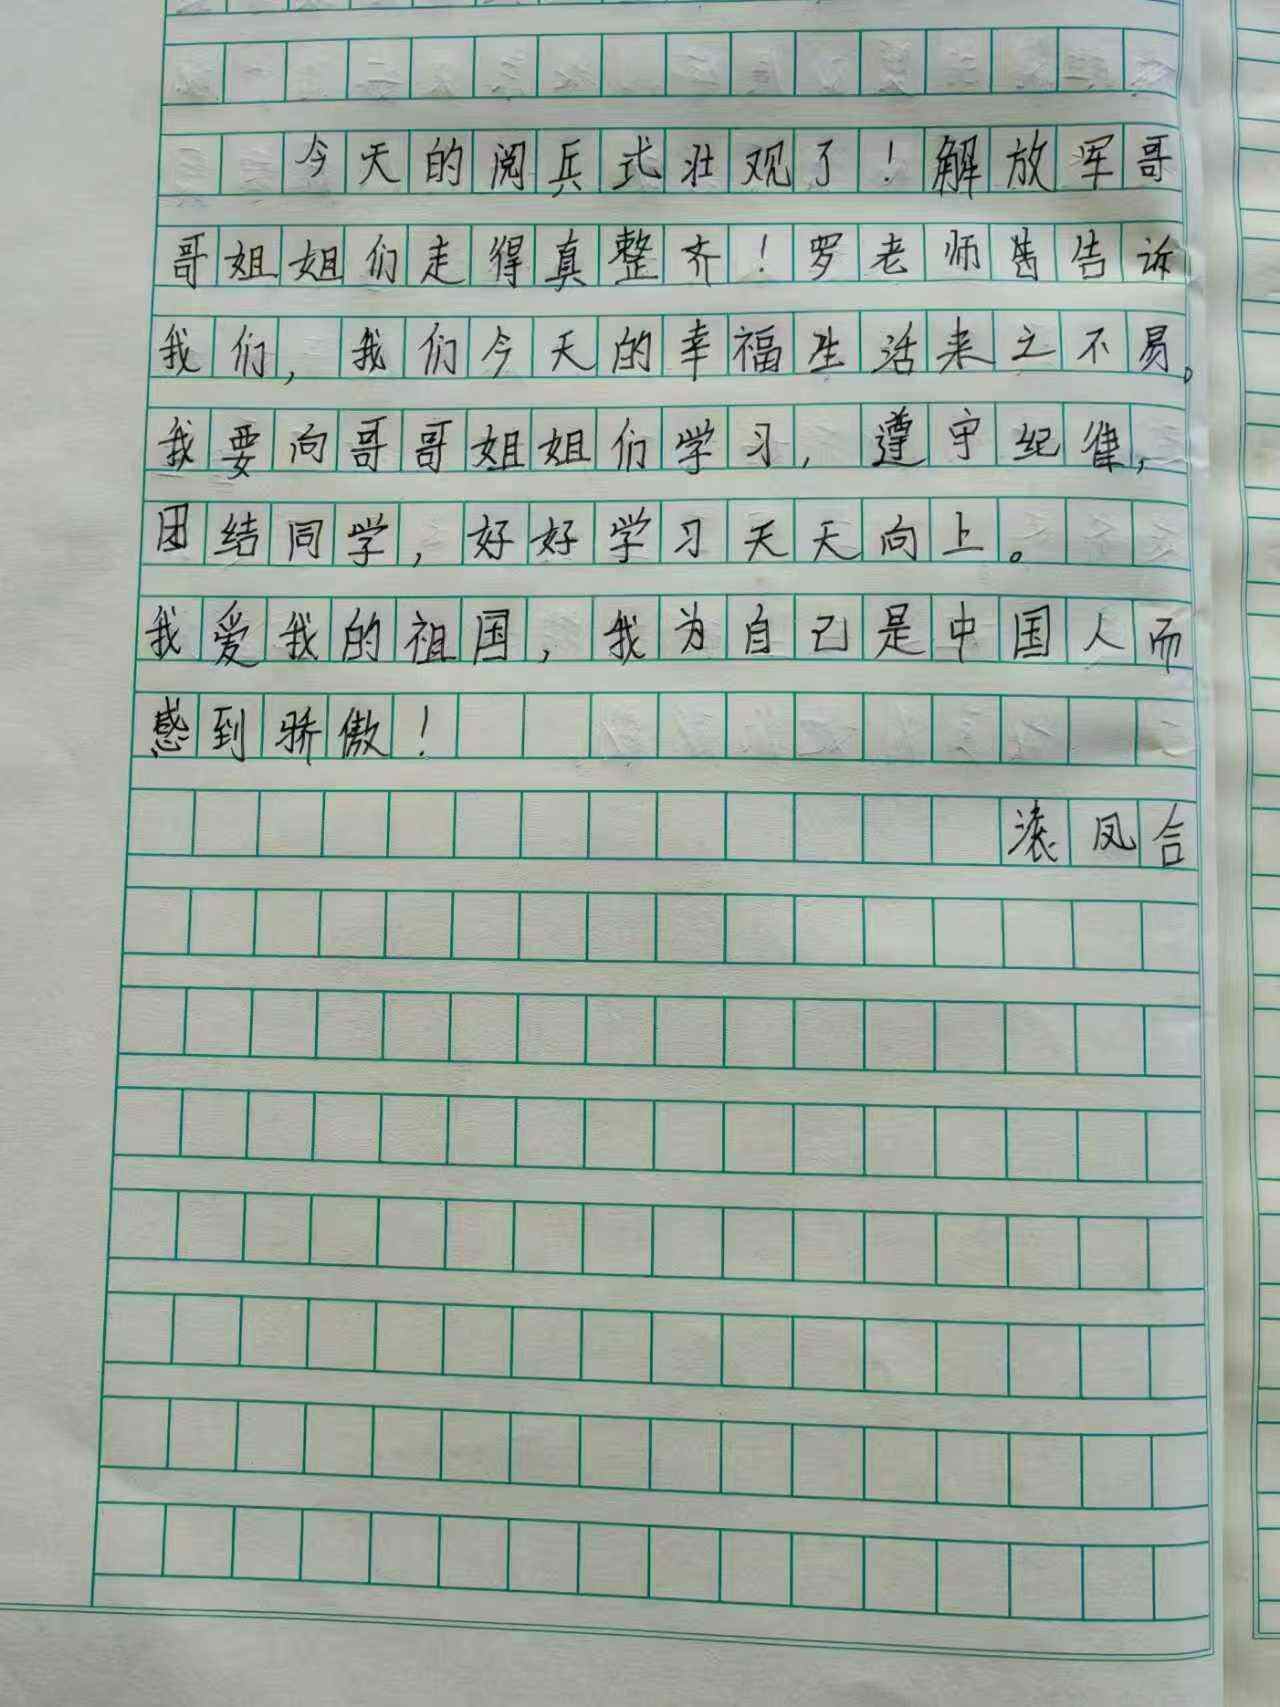 今天的阅兵式壮观了！解放军哥
哥姐姐们走得真整齐！罗老师告告诉
我们，我们今天的幸福生活来之不易。
我要向哥哥姐姐们学习，遵守纪律，
团结同学，好好学习天天向上。
我爱我的祖国，我为自己是中国人而
感到骄傲！
滚凤合